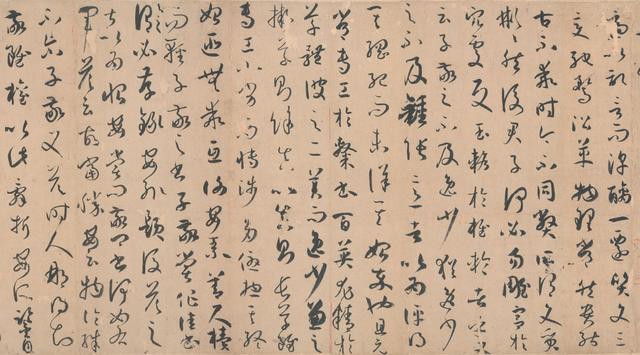 適以記言而淳醨一遷質文三
變馳鶩沿革物理常然貴能
古不乖時今不同弊所謂文質
彬彬然後君子何必易雕宮於
穴處反玉輅於椎輪者乎又
云子敬之不及逸少猶逸少
之不及鍾張意者以為評得
其綱紀而未詳其始卒也且元
常專工於隸書百英尤精於
草體彼之二美而逸少兼之
擬草則餘真比真則長草雖
專工小劣而博涉多優揔其終
始匪無乖互謝安素善尺牘
而輕子敬之書子敬嘗作佳書
與之謂必存錄安輒題後答之
甚以為恨安嘗問敬卿書何如右
軍答云故當勝安云物論殊
不爾子敬又答時人那得知
敬雖權以此辭折安所鑒